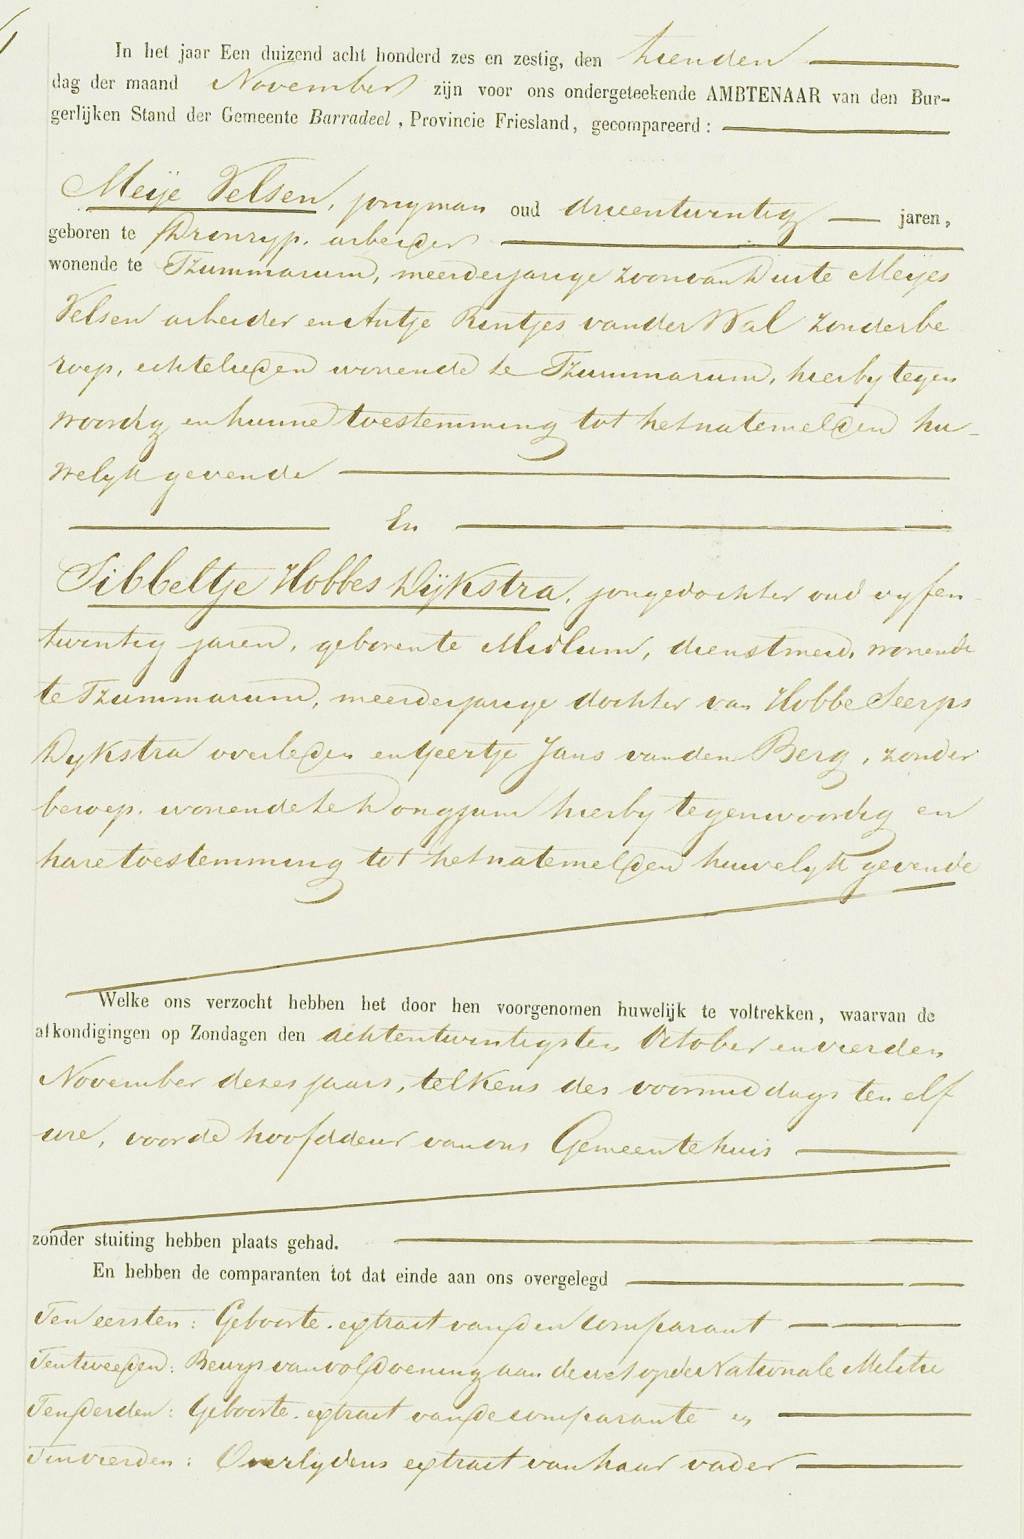 In het jaar Een duizend acht honderd zes en zestig, den tienden
dag der maand November zijn voor ons ondergeteekende AMBTENAAR van den Bur-
gerlijken Stand der Gemeente Barradeel, Provincie Friesland, gecompareerd:
Meije Velsen, jongman oud drieentwintig jaren,
geboren te Dronryp. arbeider
wonende te Tzummarum, meerderjarige zoon van Duite Meijes
Velsen arbeider en Antje Rintjes van der Wal zonder be
roep, echtelieden wonende te Tzummarum, hierby tegen
woordig en hunne toestemming tot het natemelden hu-
welyk gevende
En
Sibbeltje Hobbes Dijkstra, jongedochter oud vyfen-
twintig jaren, geboren te Midlum, dienstmeid, wonende
te Tzummarum, meerderjarige dochter van Hobbe Seerps
Dykstra overleden en Geertje Jans van den Berg, zonder
beroep. wonende te Dongjum hierby tegenwoordig en
hare toestemming tot het natemelden huwelyk gevende
Welke ons verzocht hebben het door hen voorgenomen huwelijk te voltrekken, waarvan de
afkondigingen op Zondagen den achtentwintigsten October en vierden
November dezes jaars, telkens des voormiddags ten elf
ure, voor de hoofddeur van ons Gemeentehuis
zonder stuiting hebben plaats gehad.
En hebben de comparanten tot dat einde aan ons overgelegd
Ten eersten: Geboorte-extract van den comparant
Ten tweeden: Bewys van voldoening aan de wet op de Nationale Militie
Ten derden: Geboorte-extract van de comparante en
Ten vierden: Overlydens extract van haar vader